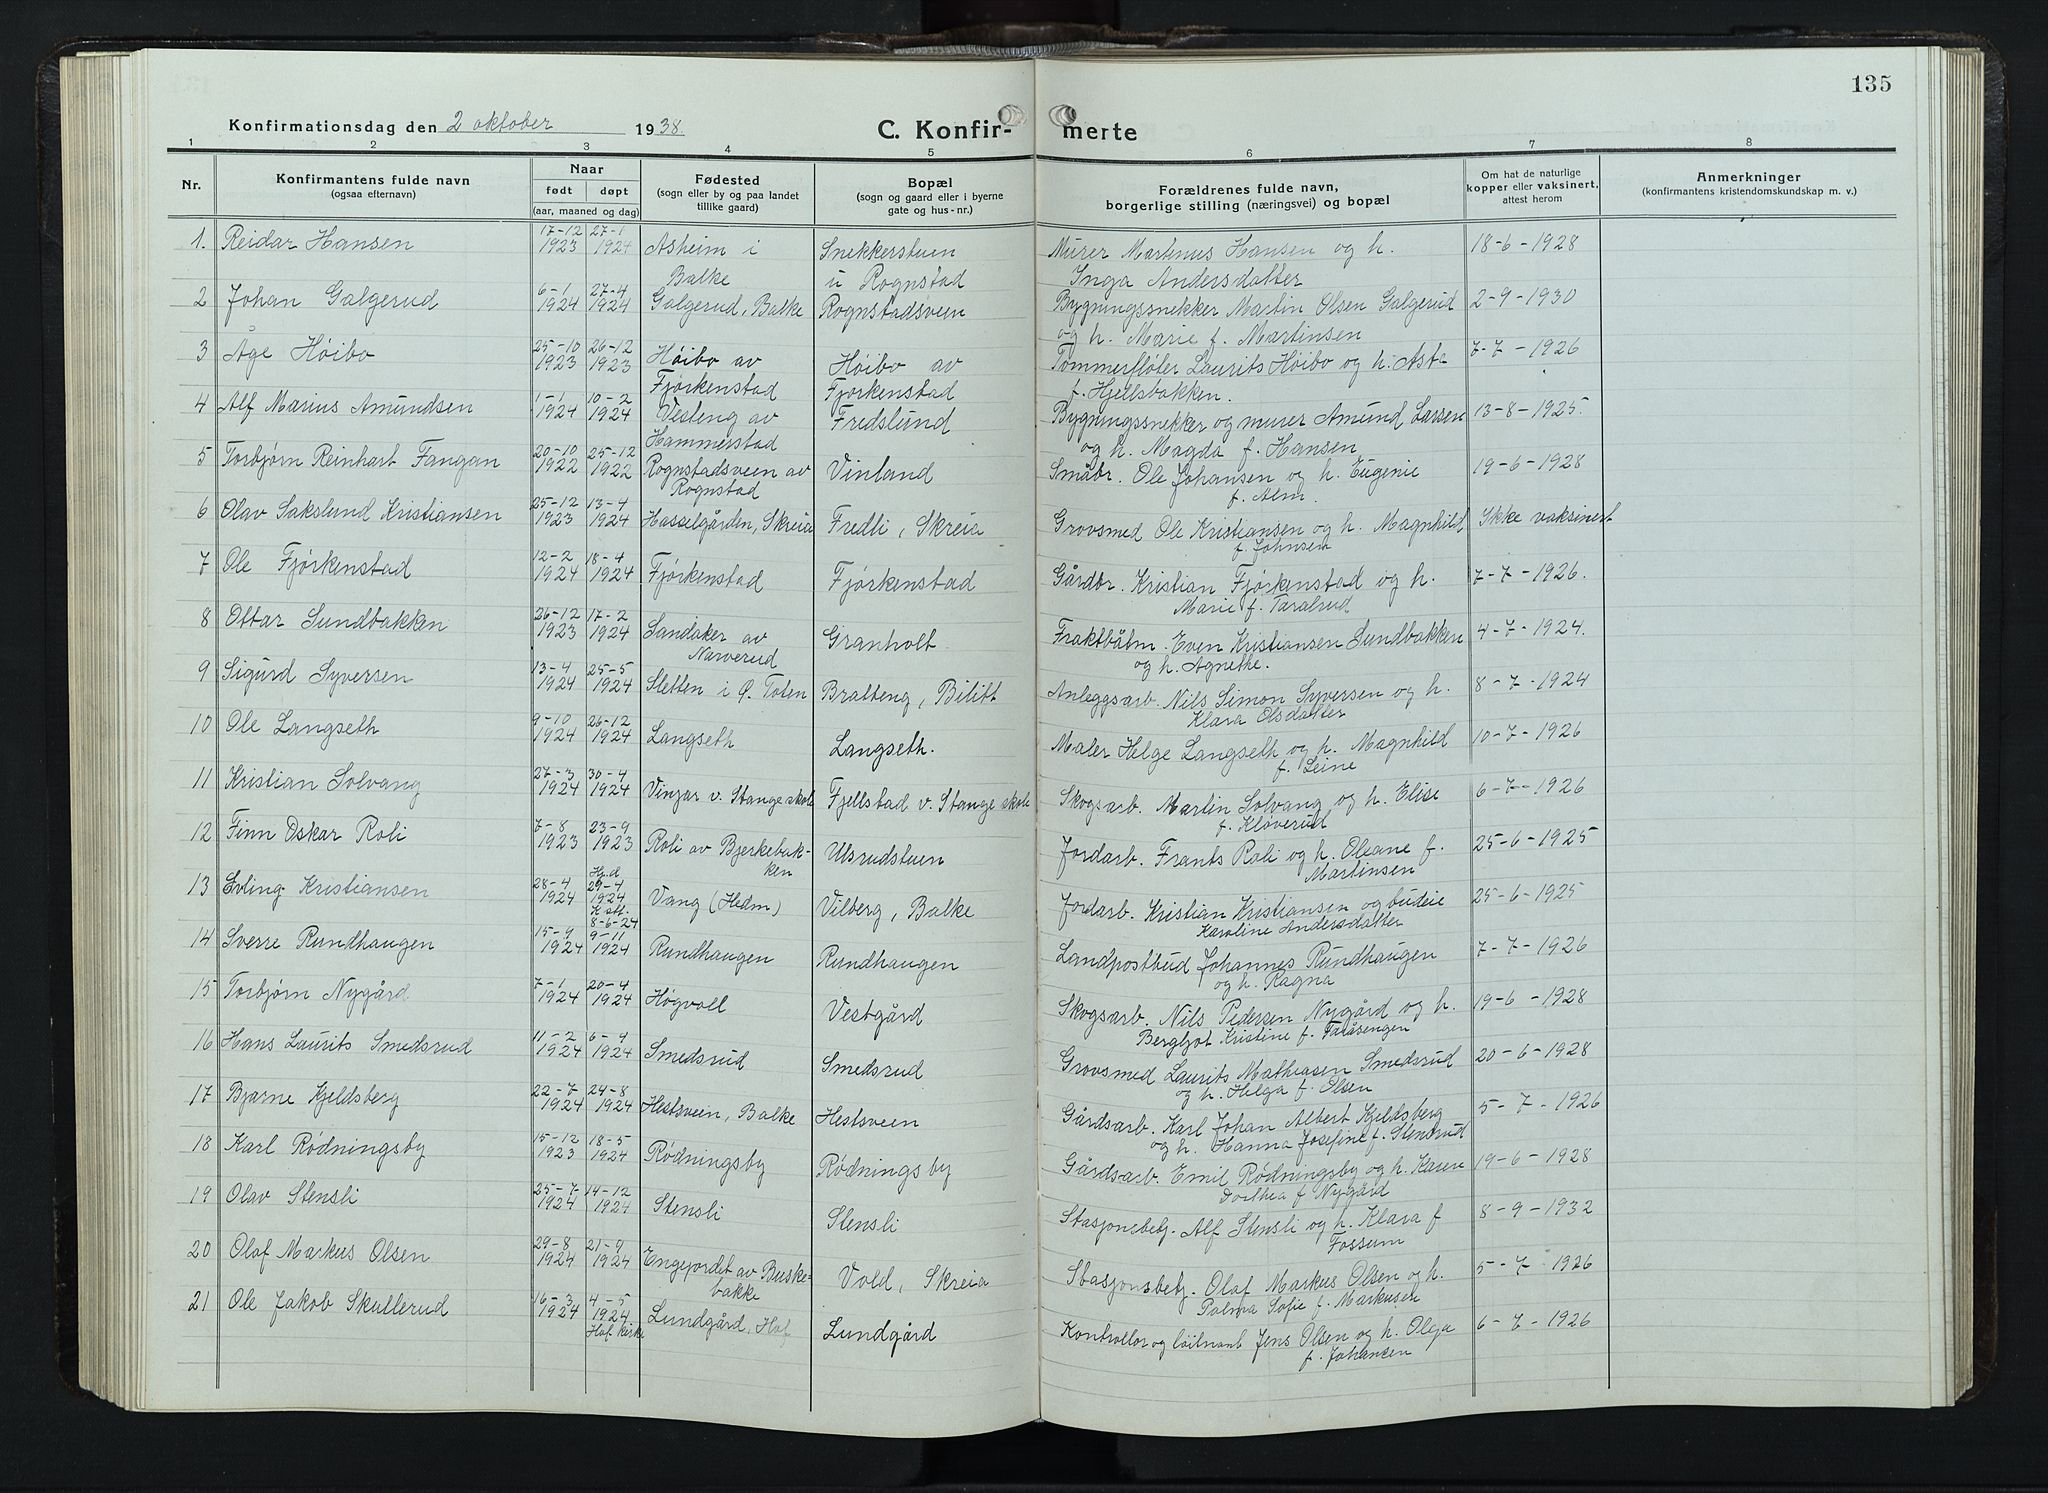 135
Konfirmationsdag den 2 oktober 1938.
C. Konfir- merte
1 2 3 4 5 6 7 8
Nr.
Konfirmantens fulde navn
(ogsaa efternavn)
Naar
født døpt
(aar, maaned og dag)
Fødested
(sogn eller by og paa landet
tillike gaard)
Bopæl
(sogn og gaard eller i byerne
gate og hus-nr.)
Forældrenes fulde navn,
borgerlige stilling (næringsvei) og bopæl
Om hat de naturlige
kopper eller vaksinert,
attest herom
Anmerkninger
(konfirmantens kristendomskundskap m. v.)
1. Reidar Hansen 17-12 1923 27-1 1924 Asheim i Balke Snekkerstuen u Rognstad Murer Martinus Hansen og h. Inga Andersdatter 18-6-1928
2 Johan Galgerud 6-1 1924 27-4 1924 Galgerud, Balke Rognstadsveen Bygningssnekker Martin Olsen Galgerud og h. Marie f. Martinsen 2-9-1930
3 Åge Høibo 25-10 1923 26-12 1923 Høibo av Fjørkenstad Høibo av Fjørkenstad Tømmerfløter Laurits Høibo og h. Asta f. Hjellsbakken. 7-7-1926
4 Alf Marius Amundsen 1-1 1924 10-2 1924 Vesteng av Hammerstad Fredslund Bygningssnekker og murer Amund Larsen og h. Magda f. Hansen 13-8-1925.
5 Torbjørn Reinhart Fangan 20-10 1922 25-12 1922 Rognstadsveen av Rognstad Vinland Småbr. Ole Johansen og h. Eugenie f. Alm. 19-6-1928
6 Olav Sakslund Kristiansen 25-12 1923 13-4 1924 Hasselgården, Skreia Fredli, Skreia Grovsmed Ole Kristiansen og h. Magnhild f. Johnsen Ikke vaksinert
7 Ole Fjørkenstad 12-2 1924 18-4 1924 Fjørkenstad Fjørkenstad Gårdbr. Kristian Fjørkenstad og h. Marie f. Taralrud 7-7-1926.
8 Ottar Sundbakken 26-12 1923 17-2 1924 Sandaker av Narverud Granholt. Fraktbåtm. Even Kristiansen Sundbakken og h. Agnethe. 4-7-1924.
9 Sigurd Syversen 13-4 1924 25-5 1924 Sletten i Ø. Toten Bratteng, Bilitt Anleggsarb. Nils Simon Syversen og h. Klara Olsdatter 8-7-1924
10 Ole Langseth 9-10 1924 26-12 1924 Langseth Langseth. Maler Helge Langseth og h. Magnhild f. Leine 10-7-1926
11 Kristian Solvang 27-3 1924 30-4 1924 Vinjar v. Stange skole Fjellstad v. Stange skole Skogsarb. Martin Solvang og h. Elise f. Kløverud 6-7-1926
12 Finn Oskar Roli 7-8 1923 23-9 1923 Roli av Bjerkebakken Ulsrudstuen Jordarb. Frants Roli og h. Oleane f. Martinsen 25-6-1925
13 Erling Kristiansen 28-4 1924 Hj.d 29-4 1924 K stf. 8-6-24 Vang (Hedm) Vilberg, Balke Jordarb. Kristian Kristiansen og budeie Karoline Andersdatter 25-6-1925
14 Sverre Rundhaugen 15-9 1924 9-11 1924 Rundhaugen Rundhaugen Landpostbud Johannes Rundhaugen og h. Ragna 7-7-1926
15 Torbjørn Nygård 7-1 1924 20-4 1924 Høgvoll Vestgård Skogsarb. Nils Pedersen Nygård og h. Bergljot Kristine f. Faråsengen 19-6-1928
16 Hans Laurits Smedsrud 11-2 1924 6-4 1924 Smedsrud Smedsrud Grovsmed Laurits Mathiasen Smedsrud og h. Helga f. Olsen 20-6-1928
17 Bjarne Kjeldsberg 22-7 1924 24-8 1924 Hestsveen, Balke Hestsveen Gårdsarb. Karl Johan Albert Kjeldsberg og h. Hanna Josefine f. Stenrud 5-7-1926
18 Karl Rødningsby 15-12 1923 18-5 1924 Rødningsby Rødningsby Gårdsarb. Emil Rødningsby og h. Karen Dorthea f Nygård 19-6-1928
19 Olav Stensli 25-7 1924 14-12 1924 Stensli Stensli Stasjonsbetj. Alf Stensli og h. Klara f Fossum 8-9-1932
20 Olaf Markus Olsen 29-8 1924 21-9 1924 Engejordet av Buskebakke Vold, Skreia Stasjonsbetj. Olaf Markus Olsen og h. Palma Sofie f. Markusen 5-7-1926
21 Ole Jakob Skullerud 16-3 1924 4-5 1924 Hof kirke Lundgård, Hof Lundgård Kontrollør og løitnant Jens Olsen og h. Olga f. Johansen 6-7-1926